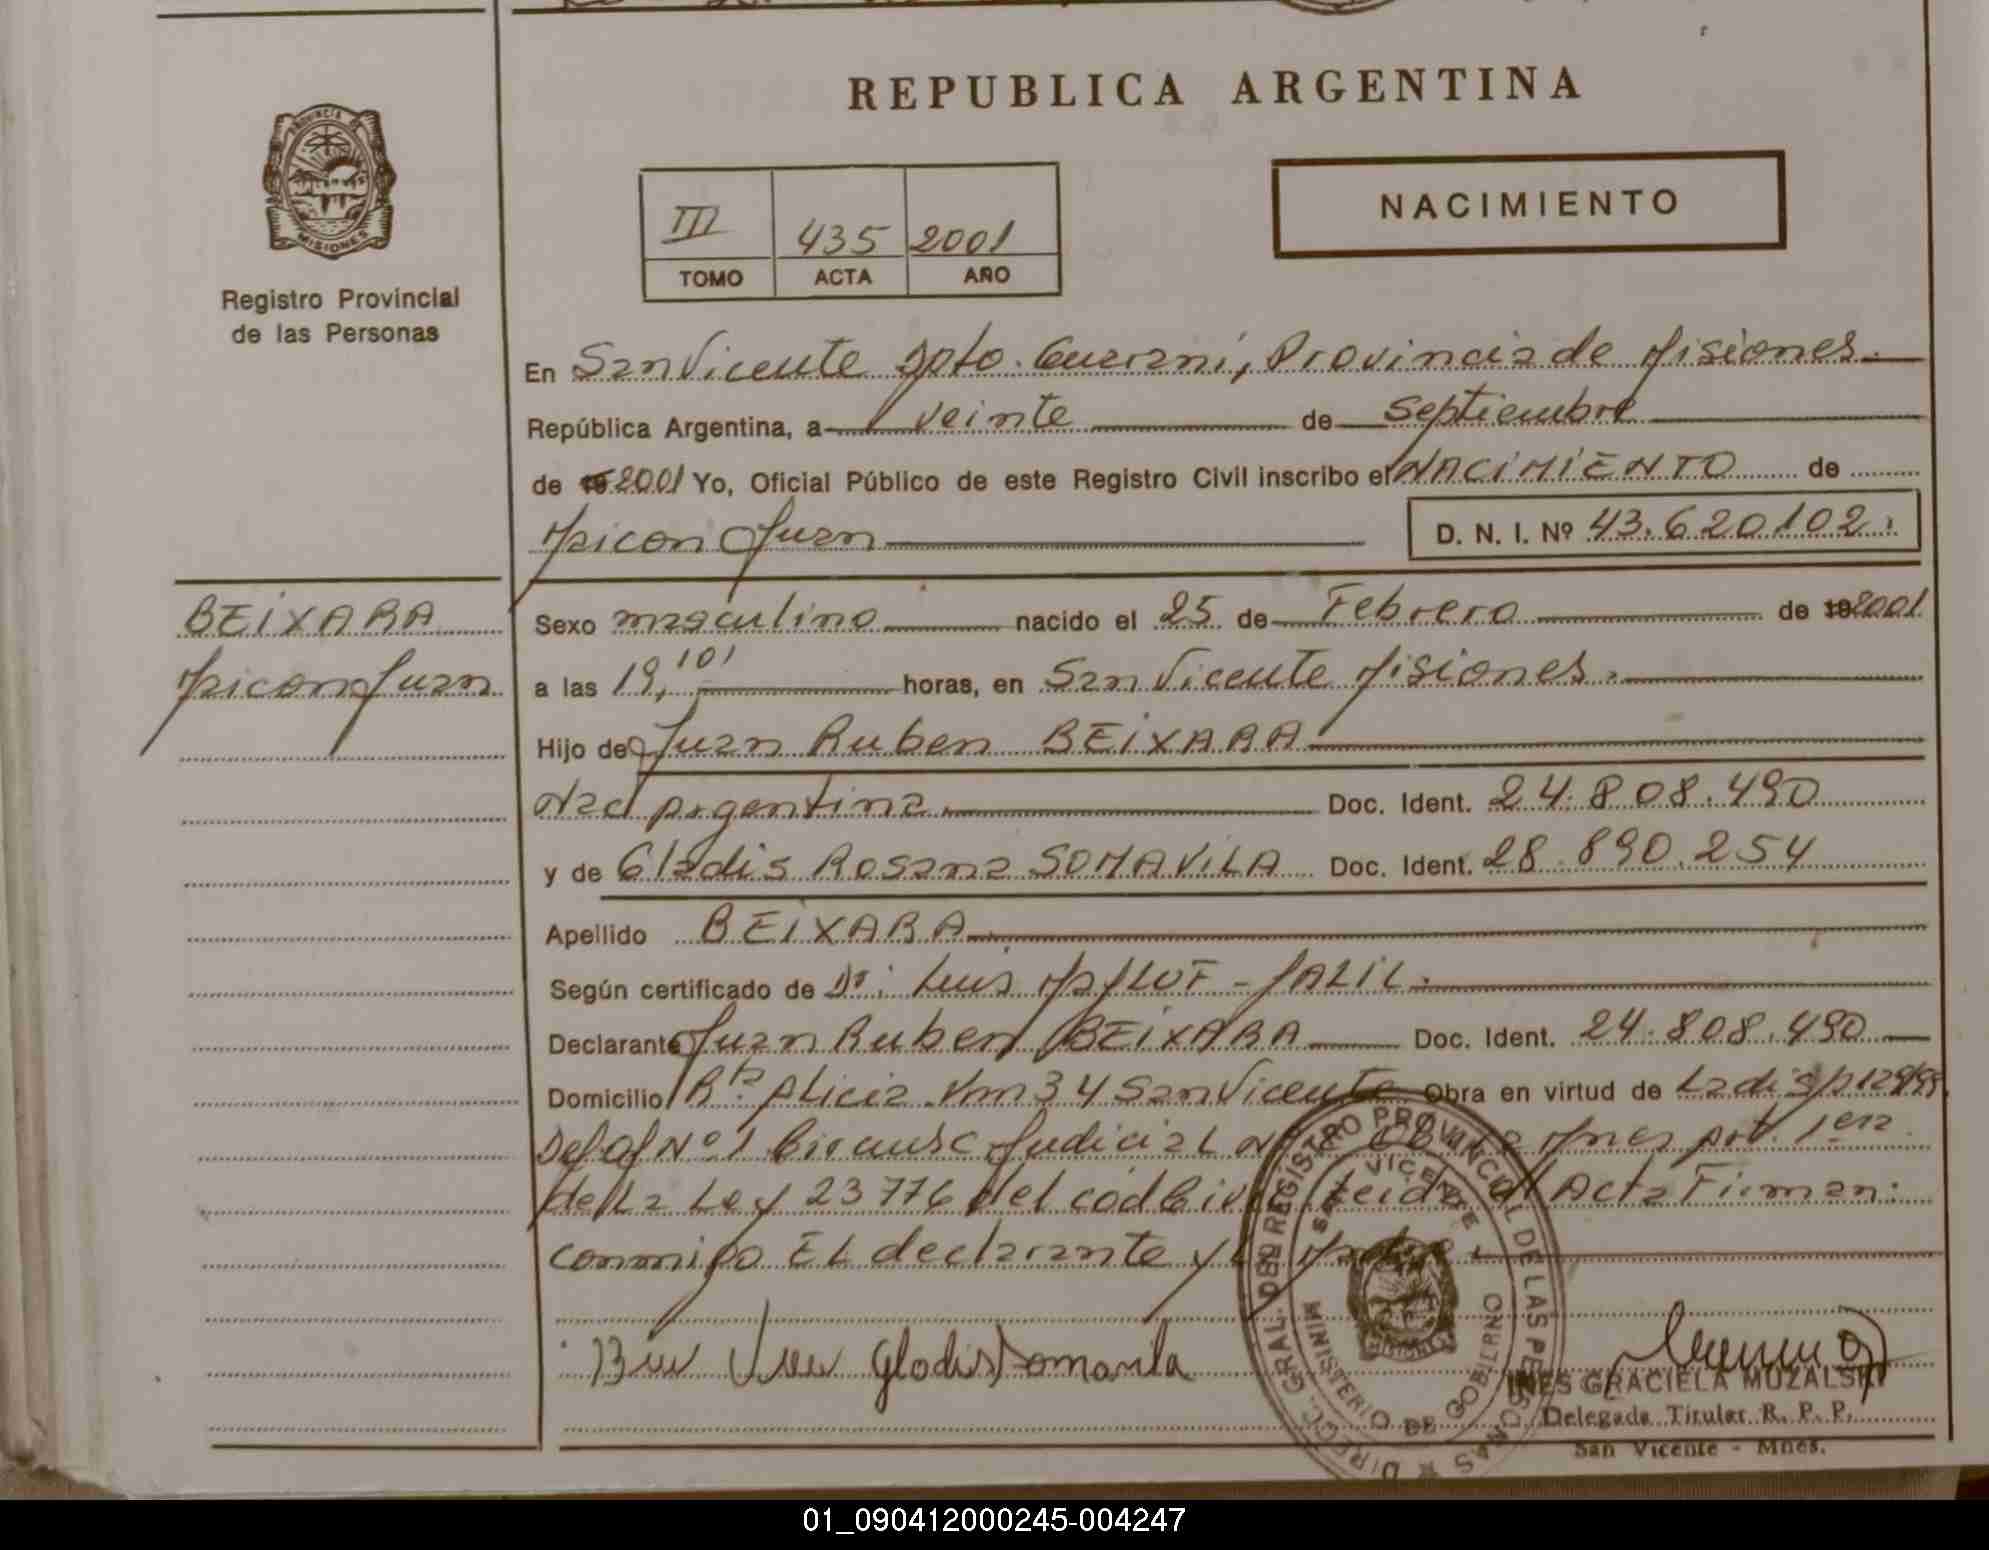 REPUBLICA ARGENTINA
PROVINCIA DE
MISIONES
Registro Provincial
de las Personas
III 435 2001
TOMO ACTA AÑO
NACIMIENTO
En San Vicente Dpto. Guarani, Provincia de Misiones.
República Argentina, a veinte de Septiembre
de 19 2001 Yo, Oficial Público de este Registro Civil inscribo el NACIMIENTO de
Maicon Juan D. N. I. Nº 43.620102.
BEIXARA
Maicon Juan
Sexo masculino nacido el 25 de Febrero de 19 2001
a las 19,10' horas, en San Vicente Misiones.
Hijo de Juan Ruben BEIXARA
Nac Argentina. Doc. Ident. 24.808.490
y de Gladis Rosana SOMAVILA Doc. Ident. 28.890.254
Apellido BEIXARA
Según certificado de Dr: Luis JALIL.
Declarante Juan Ruben BEIXARA Doc. Ident. 24.808.490
Domicilio Rta Alicia Km 34 San Vicente Obra en virtud de La disp 129/99
Def Of Nº 1 Circunsc Judicial Mnes 1era
de La Ley 23776 del cod Civil Leida el Acta Firman
conmigo EL declarante y
Gladis Somavila
DIRECC. GRAL. DEL REGISTRO PROVINCIAL DE LAS PERSONAS
SAN VICENTE
MISIONES
MINISTERIO DE GOBIERNO
INES GRACIELA MUZALSKI
Delegada Titular R. P. P.
San Vicente - Mnes.
01_090412000245-004247